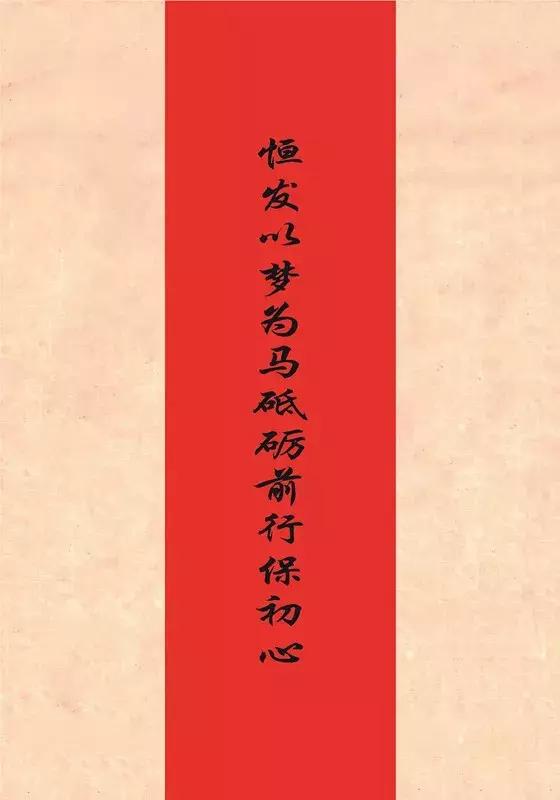 恒发以梦为马砥砺前行保初心